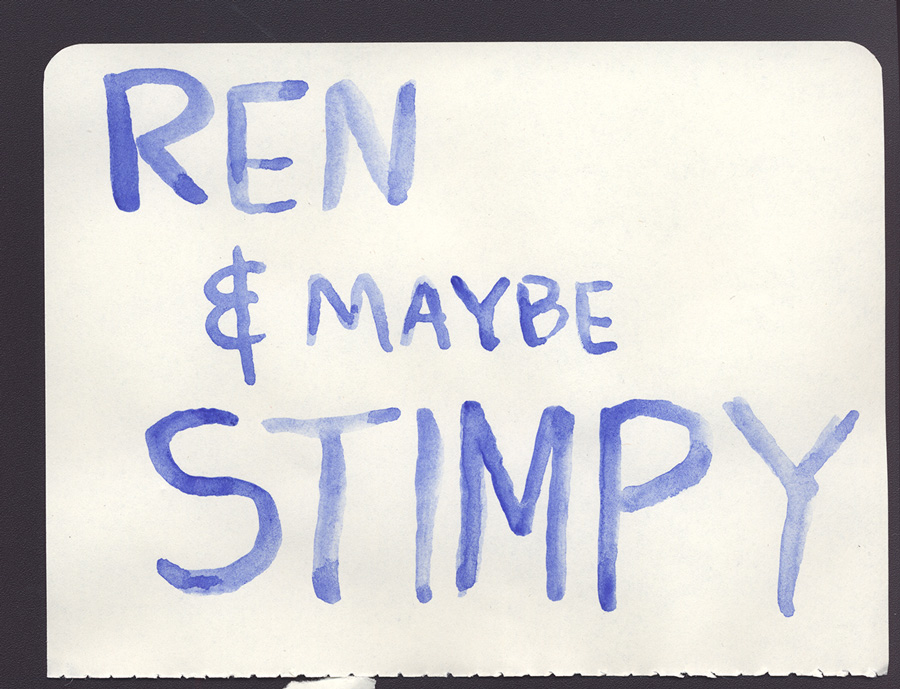 REN
& MAYBE
STIMPY